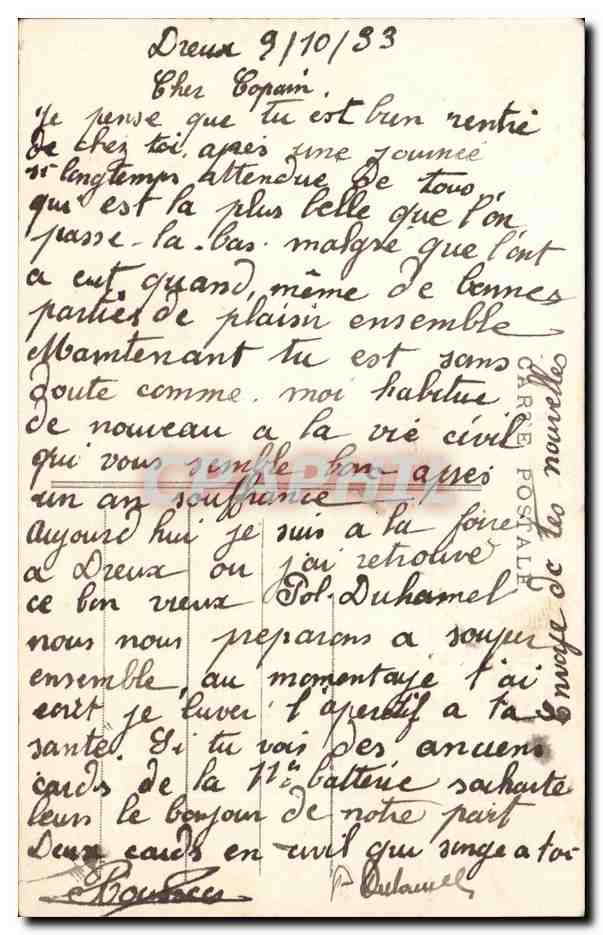 Dreux 9/10/33
Cher Copain.
Je pense que tu est bien rentré
de chez toi. après une journée
si longtemps attendue de tous,
qui est la plus belle que l'on
passe-la-bas. malgré que l'ont
a eut quand même de bonnes
parties de plaisir ensemble
Maintenant tu est sans
doute comme. moi habitue
de nouveau a la vie civil
qui vous semble bon apres
un an souffrance
Aujourd hui je suis a la foire
a Dreux ou j'ai retrouvé
ce bon vieux Pol-Duhamel
nous nous preparons a souper
ensemble, au moment
ecrit je l'aperitif a ta
santé. Si tu vois des anciens
cards de la 11e batterie souhaite
leurs le bonjour de notre part
Deux cards en civil qui songe a toi
P Duhamel
Envoye de tes nouvelles
CARTE POSTALE
CPAPHIL